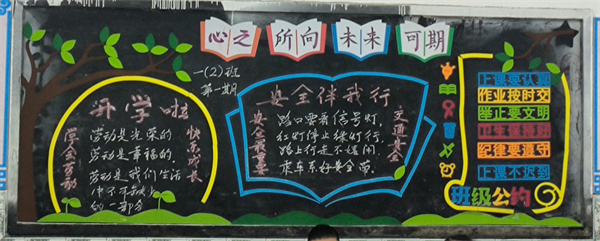 心之所向未来可期
一(2)班
第一期
开学啦
学会劳动
快乐成长
劳动是光荣的
劳动是幸福的
劳动是我们生活
中不可缺少
的一部分
安全伴我行
安全最重要
交通安全
路口要看信号灯
红灯停止绿灯行
路上行走不嬉闹
乘车系好安全带
上课要认真
作业按时交
举止要文明
卫生要
纪律要遵守
上课不迟到
班级公约